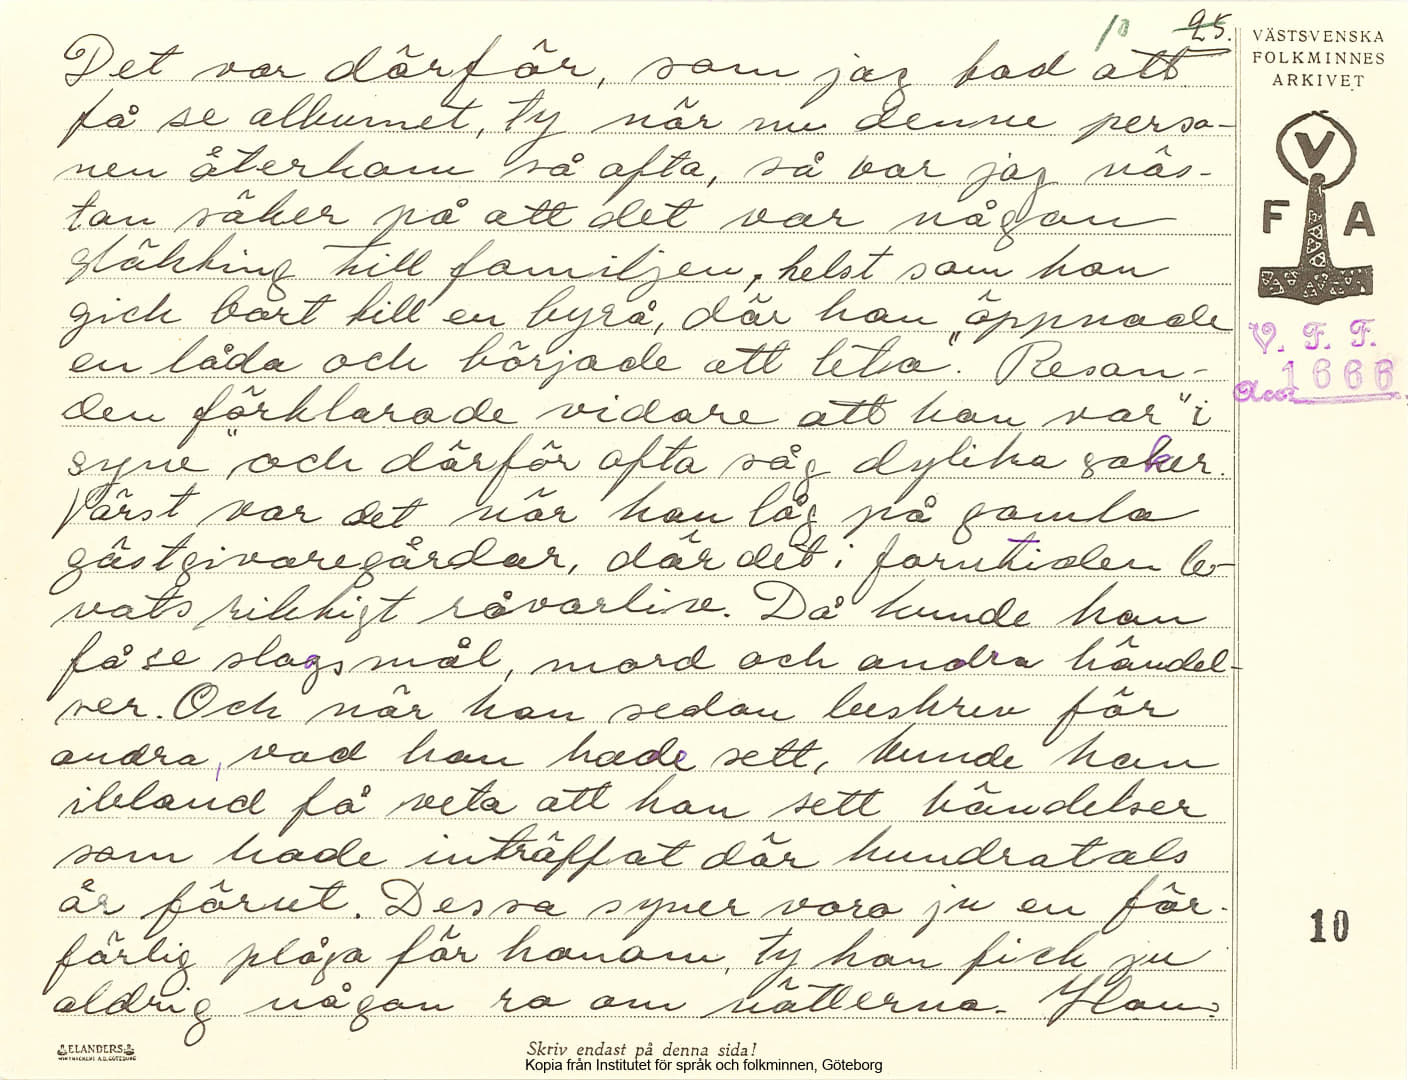 10 25.
Det var därför, som jag bad att
få se albumet, ty när nu denne perso-
nen återkom så ofta, så var jag näs-
tan säker på att det var någon
släkting till familjen, helst som han
gick bort till en byrå, där han "öppnade
en låda och började att leta". Resan-
den förklarade vidare att han var "i
syne" och därför ofta såg dylika saker.
Värst var det när han låg på gamla
gästgivaregårdar, där det i forntiden le-
vats riktigt rövarliv. Då kunde han
få se slagsmål, mord och andra händel-
ser. Och när han sedan beskrev för
andra, vad han hade sett, kunde han
ibland få veta att han sett händelser
som hade inträffat där hundratals
år förut. Dessa syner voro ju en för-
färlig plåga för honom, ty han fick ju
aldrig någon ro om nätterna. Han
VÄSTSVENSKA
FOLKMINNES
ARKIVET
V
F A
V. F. F.
Acc. 1666
10
ELANDERS
Skriv endast på denna sida!
Kopia från Institutet för språk och folkminnen, Göteborg